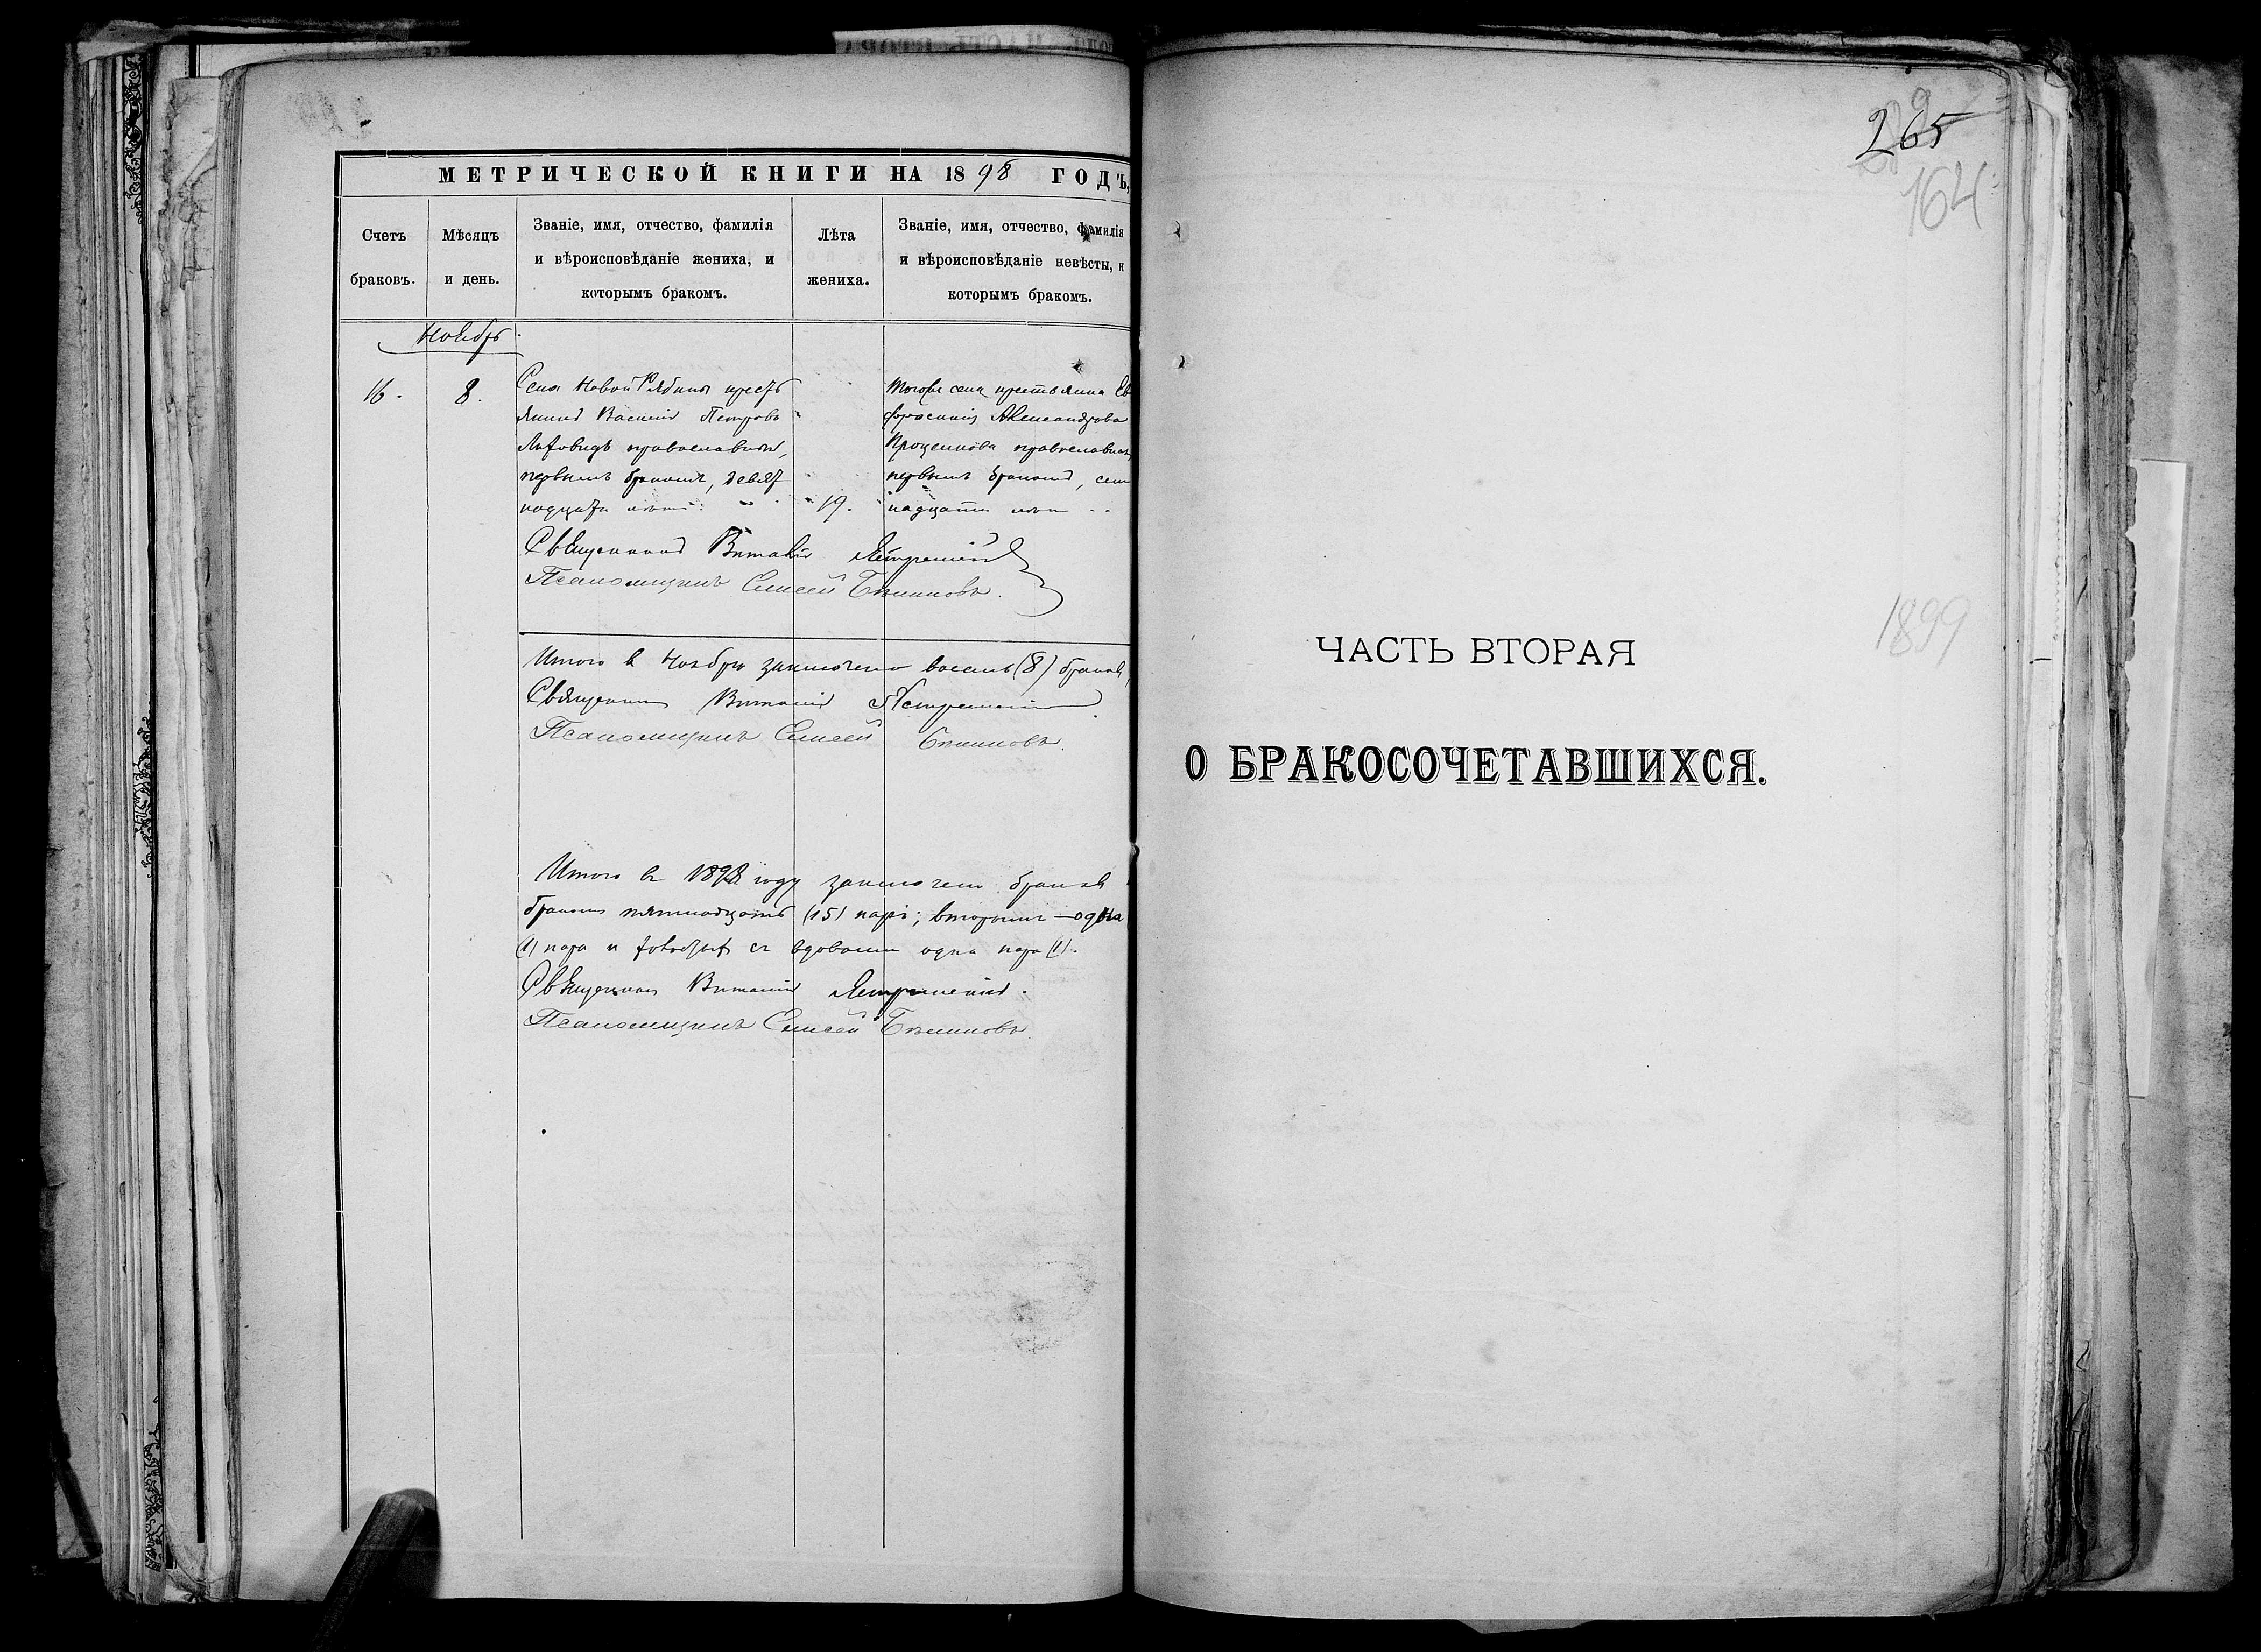 МЕТРИЧЕСКОЙ КНИГИ НА 1898 ГОДЪ,
Счетъ браковъ.
Мѣсяцъ и день.
Званіе, имя, отчество, фамилія
и вѣроисповѣданіе жениха, и
которымъ бракомъ.
Лѣта
жениха.
Званіе, имя, отчество, фамилія
и вѣроисповѣданіе невѣсты, и
которымъ бракомъ.
Ноябрь
16.
8.
Села Новой Рябины крестъ
янинъ Василій Петровъ
православный,
первымъ бракомъ, девят
надцати лѣтъ
19.
Тогоже села крестьянка Ев
фросинія Александрова
Проценкова православная
первымъ бракомъ, сем
надцати лѣтъ
Священникъ Виталій
Псаломщикъ Елисей
Итого в Ноябрѣ заключено восемь (8) браков,
Священникъ Виталій
Псаломщикъ Елисей
Итого въ 1898 году заключено браков
браком пятнадцать (15) паръ; вторымъ — одна
(1) пара и съ вдовами одна пара (1).
Священникъ Виталій
Псаломщикъ Елисей
265
164
1899
ЧАСТЬ ВТОРАЯ
О БРАКОСОЧЕТАВШИХСЯ.